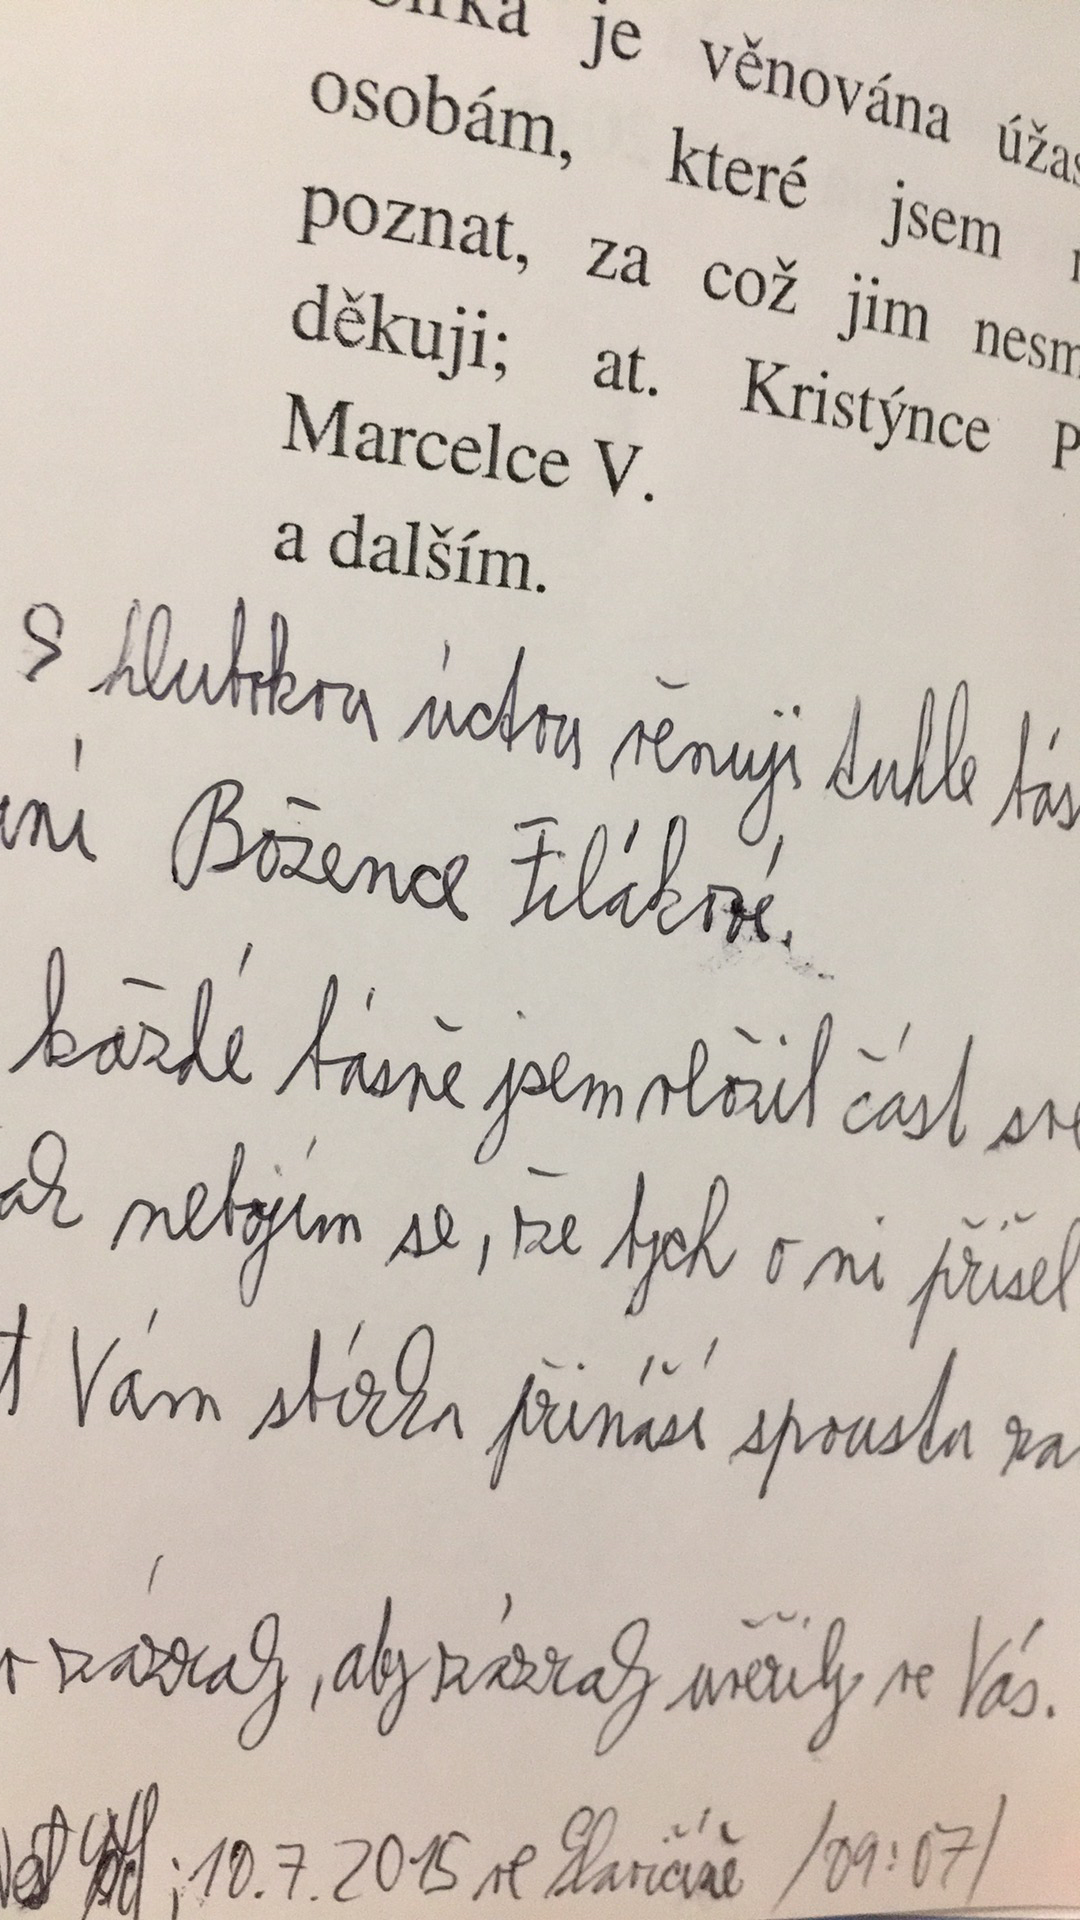 je věnována
osobám, které jsem
poznat, za což jim
děkuji; at. Kristýnce P
Marcelce V.
a dalším.
S hlubokou úctou věnuji tuhle
Božence Filákové.
každé básně jsem vložil část
nebojím se, že bych o ni přišel
Vám sbírka přináší spoustu
zázraky, aby zázraky uvěřily ve Vás.
; 10.7.2015 ve Slavičíně /09:07/